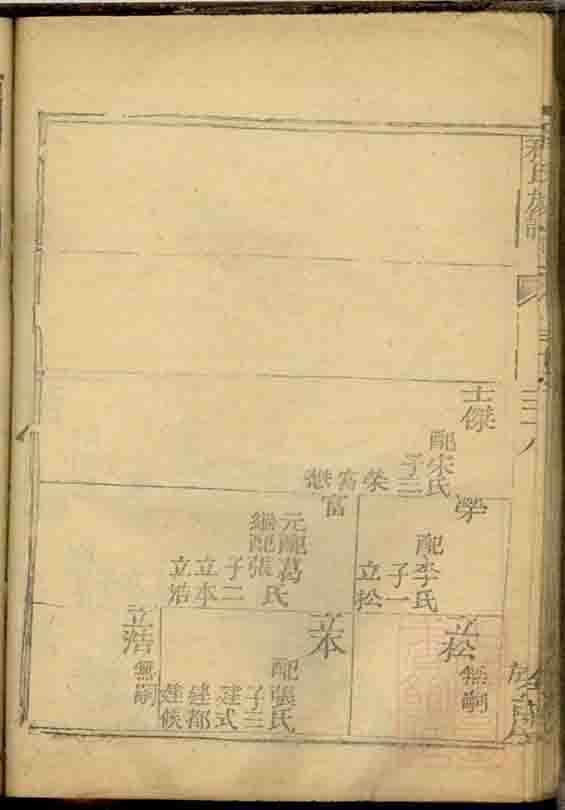 氏族譜
三十八
士傑
配宋氏
子三
榮 富 愁
榮
配李氏
子一
立松
富
元配葛氏
繼配張氏
子二
立本
立浩
立松
無嗣
立本
配張氏
子三
建式
建都
建候
立浩
無嗣